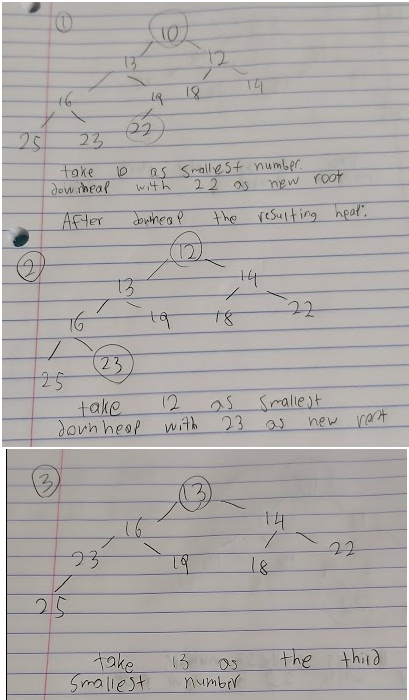 1
10
13 12
16 19 18 14
25 23 22
take 10 as smallest number.
downheap with 22 as new root
After downheap the resulting heap:
2
12
13 14
16 19 18 22
25 23
take 12 as smallest
downheap with 23 as new root
3
13
16 14
23 19 18 22
25
take 13 as the third
smallest number